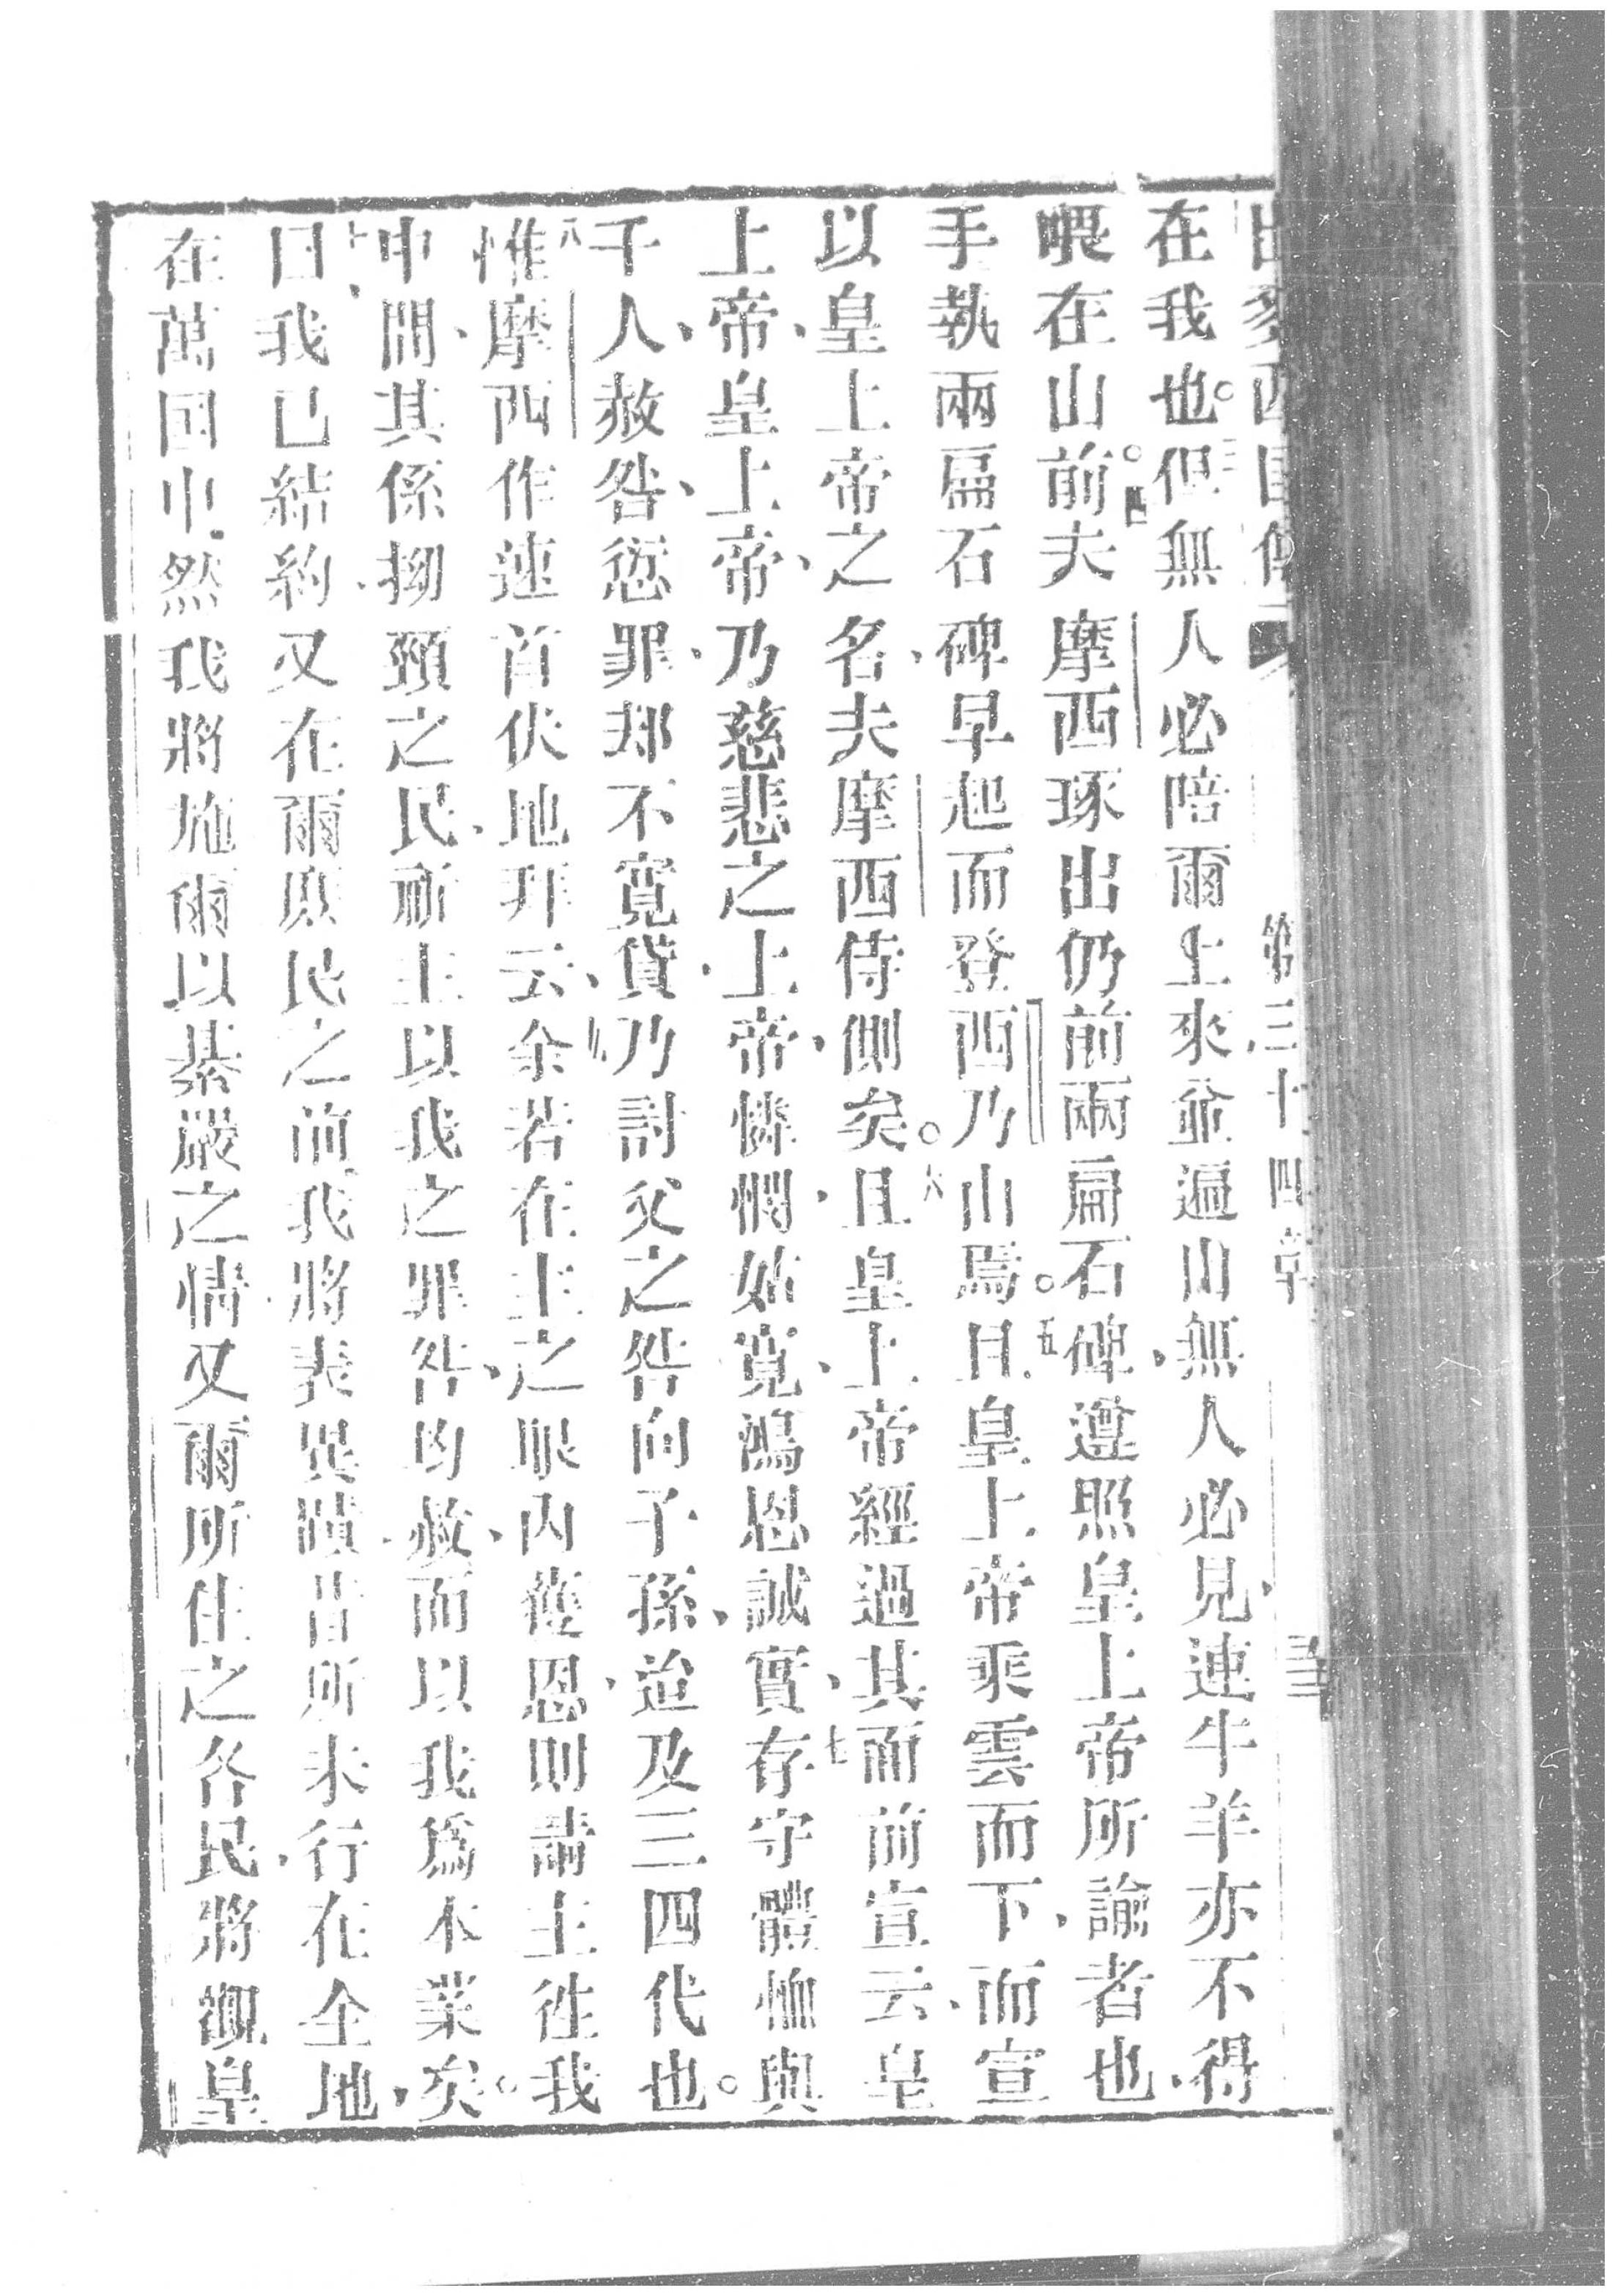 出麥西国傳 第三十四章
在我也。三但無人必陪爾上來並遍山無人必見連牛羊亦不得
喂在山前。四夫摩西琢出仍前兩扁石碑、遵照皇上帝所諭者也、
手執兩扁石碑早起而登西乃山焉。五且皇上帝乘雲而下、而宣
以皇上帝之名、夫摩西侍側矣。六且皇上帝經過其而前宣云、皇
上帝、皇上帝、乃慈悲之上帝、憐憫、姑寬、鴻恩誠實、七存守體恤與
千人、赦咎、愆罪、却不寬貸、乃討父之咎向子孫、迨及三四代也。
八惟摩西作速首伏地拜云、九余若在主之眼內獲恩、則請主往我
中間、其係拗頸之民、祈主以我之罪咎、均赦、而以我爲本業矣。
十曰、我已結約、又在爾眾民之前、我將表異蹟昔所未行在全地、
在萬国中、然我將施爾以綦嚴之情又爾所住之各民、將御皇